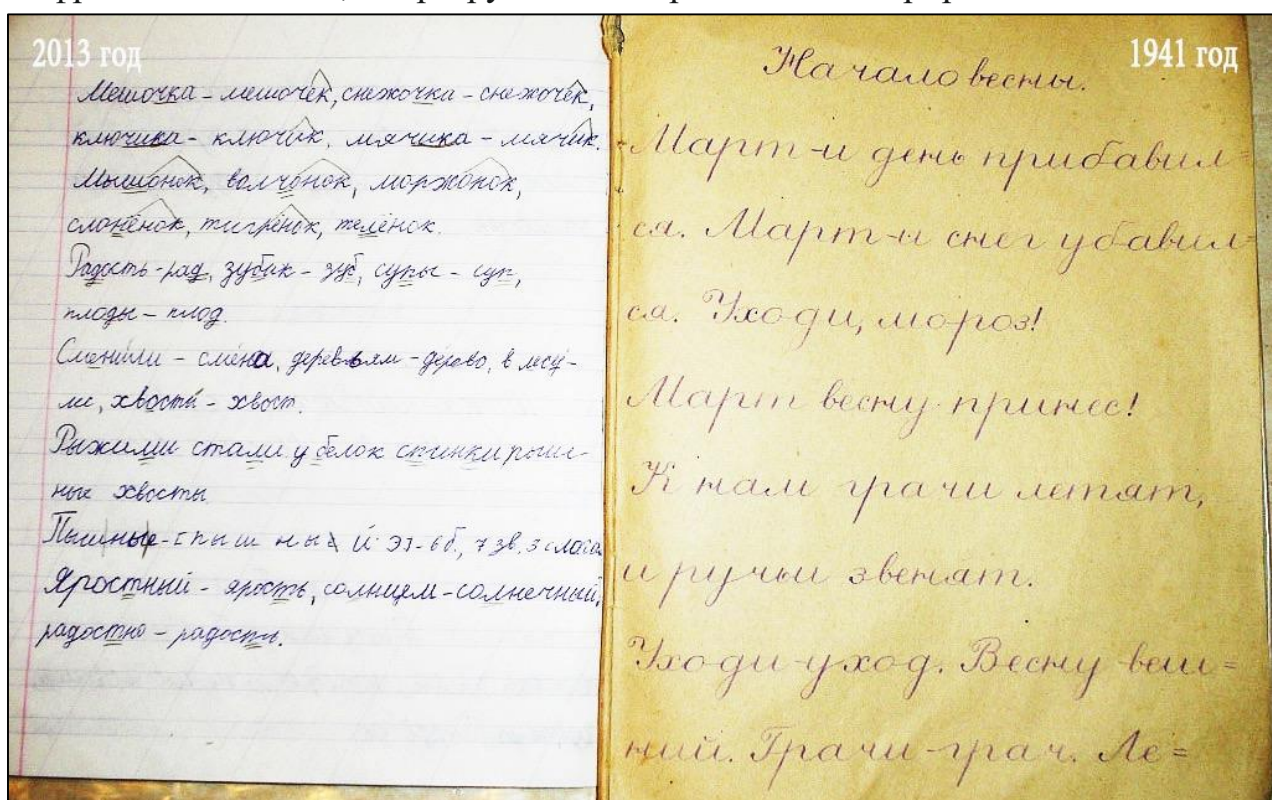 2013 год
Мешочка – мешочек, снежочка – снежочек,
ключика – ключик, мячика – мячик.
Мышонок, волчонок, моржонок,
слонёнок, тигрёнок, телёнок.
Радость – рад, зубик – зуб, супы – суп,
плоды – плод.
Сменили – смена, деревьям – дерево, в лесу –
ле, хвосты – хвост.
Рыжими стали у белок спинки
ные хвосты.
Пышные – [п ы ш н ы й' э] – 6 б., 7 зв. 3 слога
Яростный – ярость, солнцем – солнечный,
радостно – радость.
1941 год
Начало весны.
Март-и день прибавил=
ся. Март-и снег убавил=
ся. Уходи, мороз!
Март весну принес!
К нам грачи летят,
и ручьи звенят.
Уходи-уход. Весну-веш=
ний. Грачи-грач. Ле=